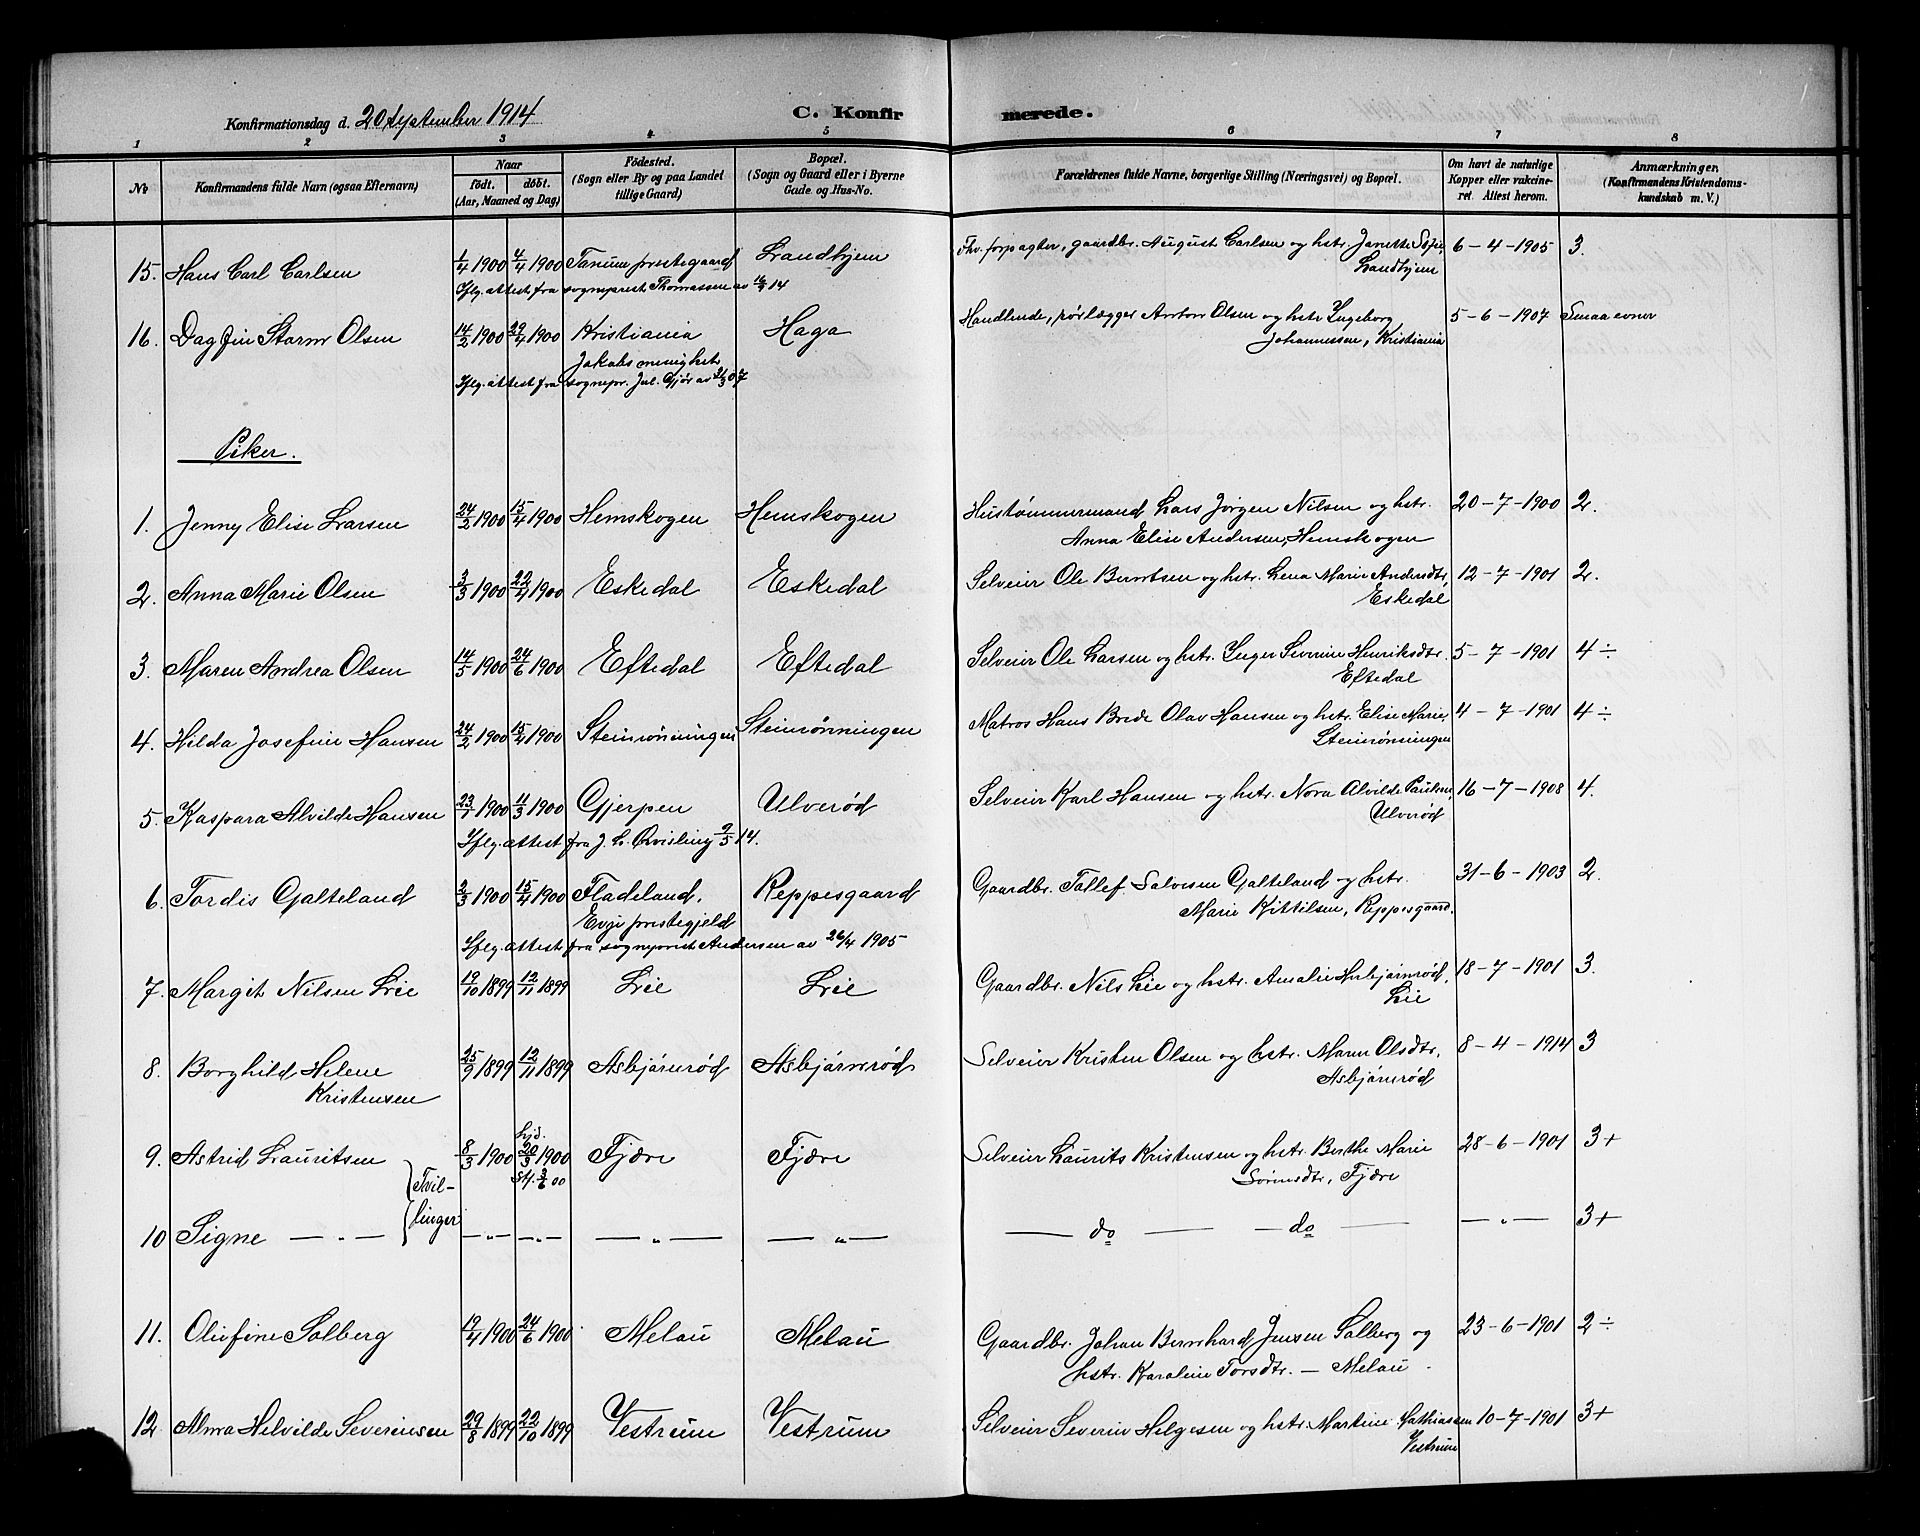 Konfirmationsdag d. 20 September 1914
C. Konfir merede.
1 2 3 4 5 6 7 8
No
Konfirmandens fulde Navn (ogsaa Efternavn)
Naar
födt. döbt.
(Aar, Maaned og Dag)
Födested.
(Sogn eller By og paa Landet
tillige Gaard)
Bopæl.
(Sogn og Gaard eller i Byerne
Gade og Hus-No.
Forældrenes fulde Navne, borgerlige Stilling (Næringsvei) og Bopæl.
Om havt de naturlige
Kopper eller vakcine-
ret. Attest herom.
Anmærkninger.
(Konfirmandens Kristendoms-
kundskab m. V.)
15. Hans Carl Carlsen 1/4 1900 4/4 1900 Tanum prestegaard Landhjem Fhv. forpagter, gaardbr. August Carlsen og hstr. Janette Sofie, 6-4-1905 3.
Landhjem
Iflg. attest fra sogneprest Thomassen av 14
16. Dagfin Storm Olsen 14/2 1900 29/4 1900 Kristiania Haga Handlende, rörlægger Anton Olsen og hstr Ingeborg 5-6-1907 Smaa evner
Johannessen, Kristiania
Jakobs menighet
Iflg. attest fra sognepr. Jul. Gjör av 07
Piker.
1. Jenny Elise Larsen 24/2 1900 15/4 1900 Hemskogen Hemskogen Hustømmermand Lars Jörgen Nilsen og hstr. 20-7-1900 2.
Anna Elise Andersen, Hemskogen
2. Anna Marie Olsen 3/3 1900 22/4 1900 Eskedal Eskedal Selveier Ole Berntsen og hstr. Lena Marie Andersdtr, 12-7-1901 2.
Eskedal
3. Maren Andrea Olsen 14/5 1900 24/6 1900 Eftedal Eftedal Selveier Ole Larsen og hstr. Inger Severine Henriksdtr. 5-7-1901 4÷
Eftedal
4. Hilda Josefine Hansen 24/2 1900 15/4 1900 Steinrönningen Steinrönningen Matros Hans Brede Olav Hansen og hstr. Elise Marie, 4-7-1901 4÷
Steinrönningen
5. Kaspara Alvilde Hansen 23/1 1900 11/3 1900 Gjerpen Ulveröd Selveier Karl Hansen og hstr. Nora Alvilde Paulsen, 16-7-1908 4.
Ulveröd
Iflg. attest fra J. L. Qvisling 9/5 14.
6. Tordis Galteland 2/3 1900 15/4 1900 Fladeland, Reppesgaard Gaardbr. Tallef Salvesen Galteland og hstr. 31-6-1903 2.
Marie Kittilsen, Reppesgaard.
Evje prestegjeld
Iflg. attest fra sogneprest Andersen av 26/4 1905
7. Margit Nilsen Lie 19/10 1899 12/11 1899 Lie Lie Gaardbr. Nils Lie og hstr. Amalie Herbjörnröd, 18-7-1901 3.
Lie
8. Borghild Helene 25/9 1899 12/11 1899 Asbjörnröd Asbjörnröd Selveier Kristen Olsen og hstr. Maren Olsdtr. 8-4-1914 3
Kristensen Asbjörnröd
9. Astrid Lauritsen 8/3 1900 hjd. 20/3 1900 Fjære Fjære Selveier Laurits Kristensen og hstr. Berthe Marie 28-6-1901 3+
Stf. 3/6 00 Sörensdtr, Fjære
Tvil-
linger
10 Signe —„— —„— —„— —„— —„— — do — — do — —„— 3+
11. Olufine Solberg 19/4 1900 24/6 1900 Melau Melau Gaardbr. Johan Bernhard Jensen Solberg og 23-6-1901 2÷
hstr. Karoline Torsdtr. — Melau.
12. Alma Helvilde Severinsen 29/8 1899 22/10 1899 Vestrum Vestrum Selveier Severin Helgesen og hstr. Martine Mathiassen 10-7-1901 3+
Vestrum